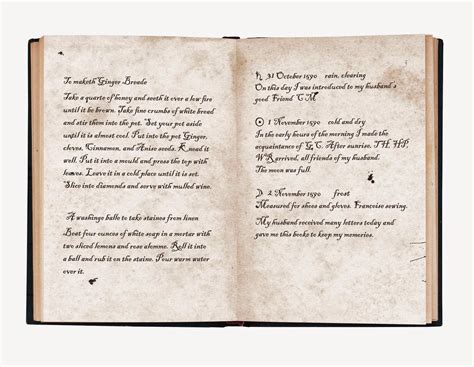 To maketh Ginger Breade
Take a quarte of honey and seeth it over a low fire
until it be brown. Take fine crumbs of white bread
and stir them into the pot. Set your pot aside
until it is almost cool. Put into the pot Ginger,
cloves, Cinnamon, and Anise seeds. Knead it
well. Put it into a mould and press the top with
leaves. Leave it in a cold place until it is set.
Slice into diamonds and serve with mulled wine.
A washinge balle to take staines from linen
Beat four ounces of white soap in a mortar with
two sliced lemons and rose alomme. Roll it into
a ball and rub it on the staine. Pour warm water
over it.
♄ 31 October 1590 rain, clearing
On this day I was introduced to my husband's
good Friend C.M.
☉ 1 November 1590 cold and dry
In the early hours of the morning I made the
acquaintance of G.C. After sunrise, T.H. H.P.
W.R arrived, all friends of my husband.
The moon was full.
☽ 2 November 1590 frost
Measured for shoes and gloves. Francoise sewing.
My husband received many letters today and
gave me this booke to keep my memories.